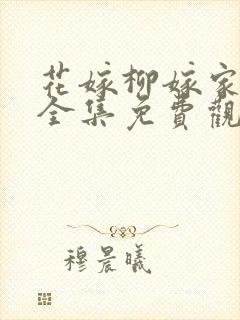 花嫁柳嫁家
全集免費觀
穆晨曦